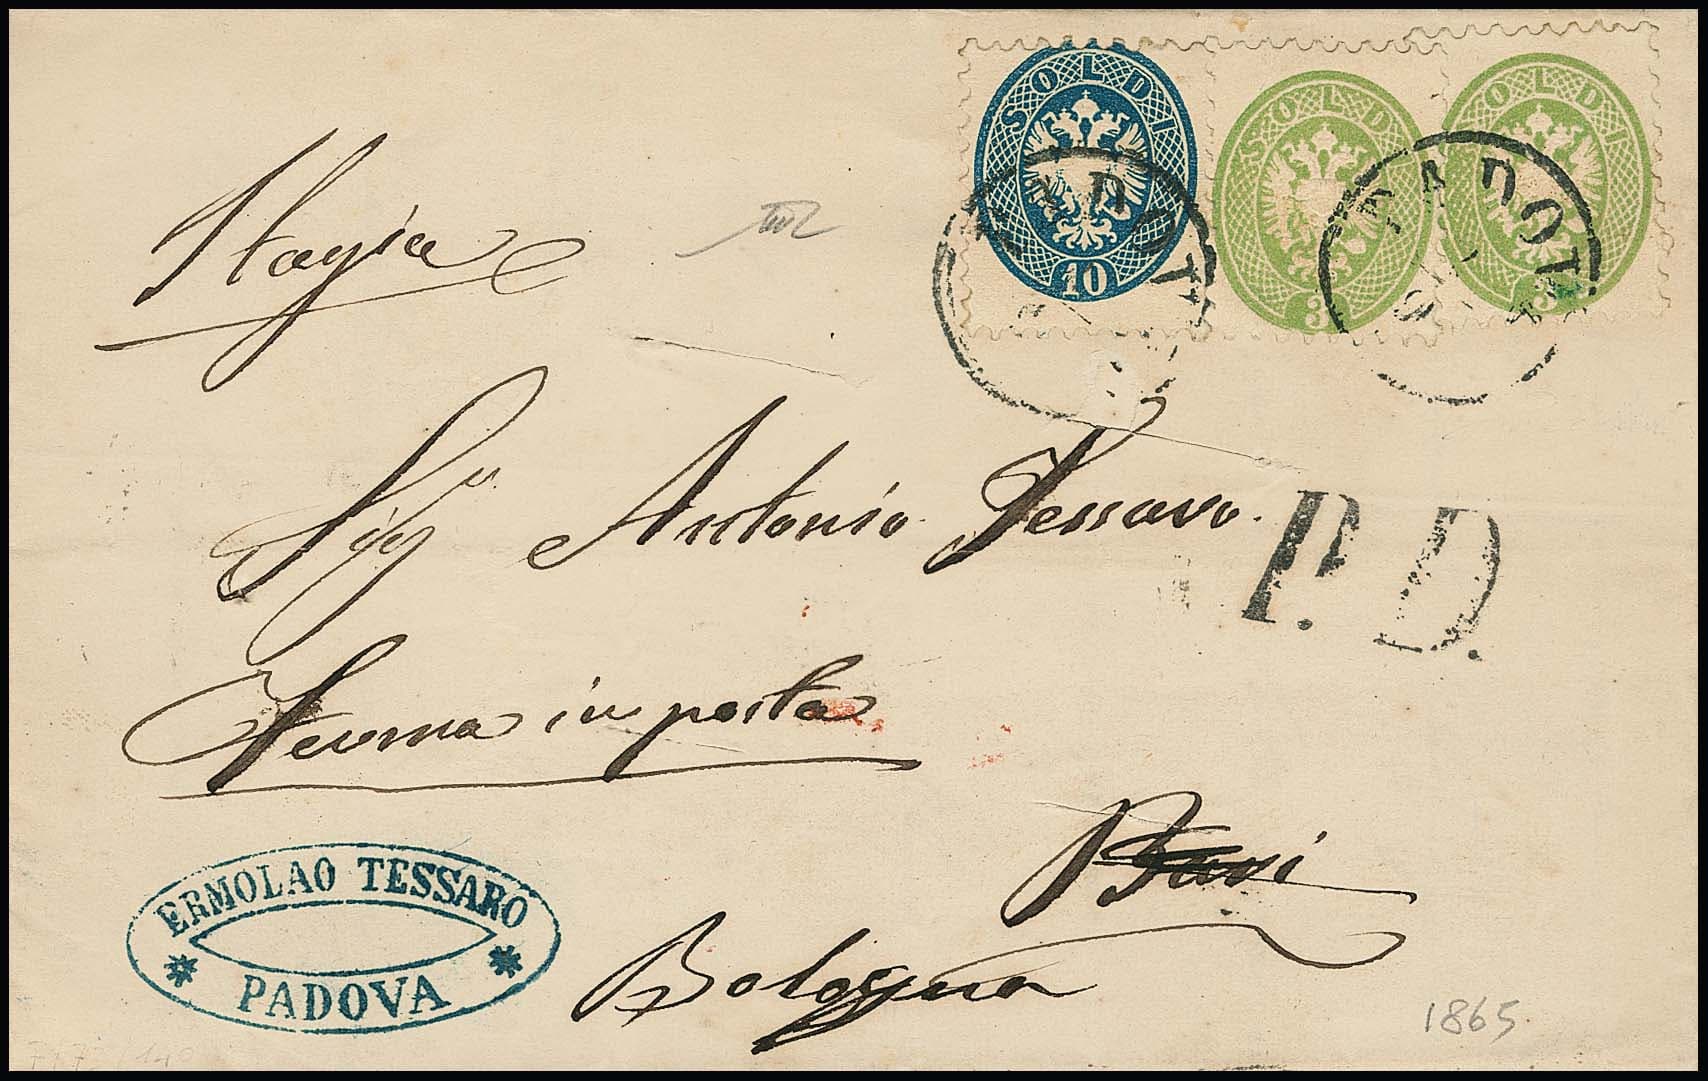 SOLDI 10
SOLDI 3
SOLDI 3
PADOVA
PADOVA
Italia
Sigr Antonio Tessaro.
ferma in posta
P.D.
Bari
Bologna
ERMOLAO TESSARO
PADOVA
1865